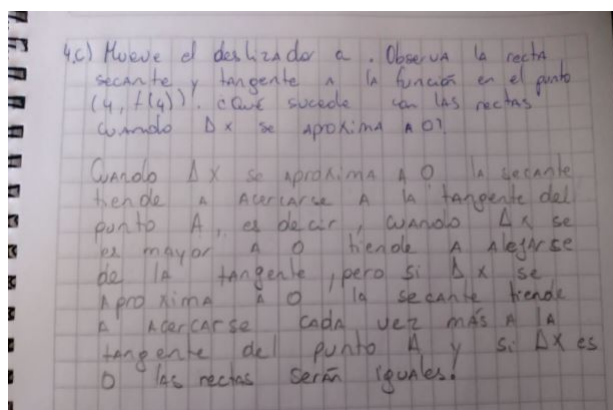 4.c) Mueve el deslizador a . Observa la recta
secante y tangente a la función en el punto
(4, f(4)). ¿Qué sucede con las rectas
cuando Δx se aproxima a 0?
Cuando Δx se aproxima a 0 la secante
tiende a acercarse a la tangente del
punto A, es decir, cuando Δx se
es mayor a 0 tiende a alejarse
de la tangente, pero si Δx se
aproxima a 0 la secante tiende
a acercarse cada vez más a la
tangente del punto A y si Δx es
0 las rectas serán iguales.